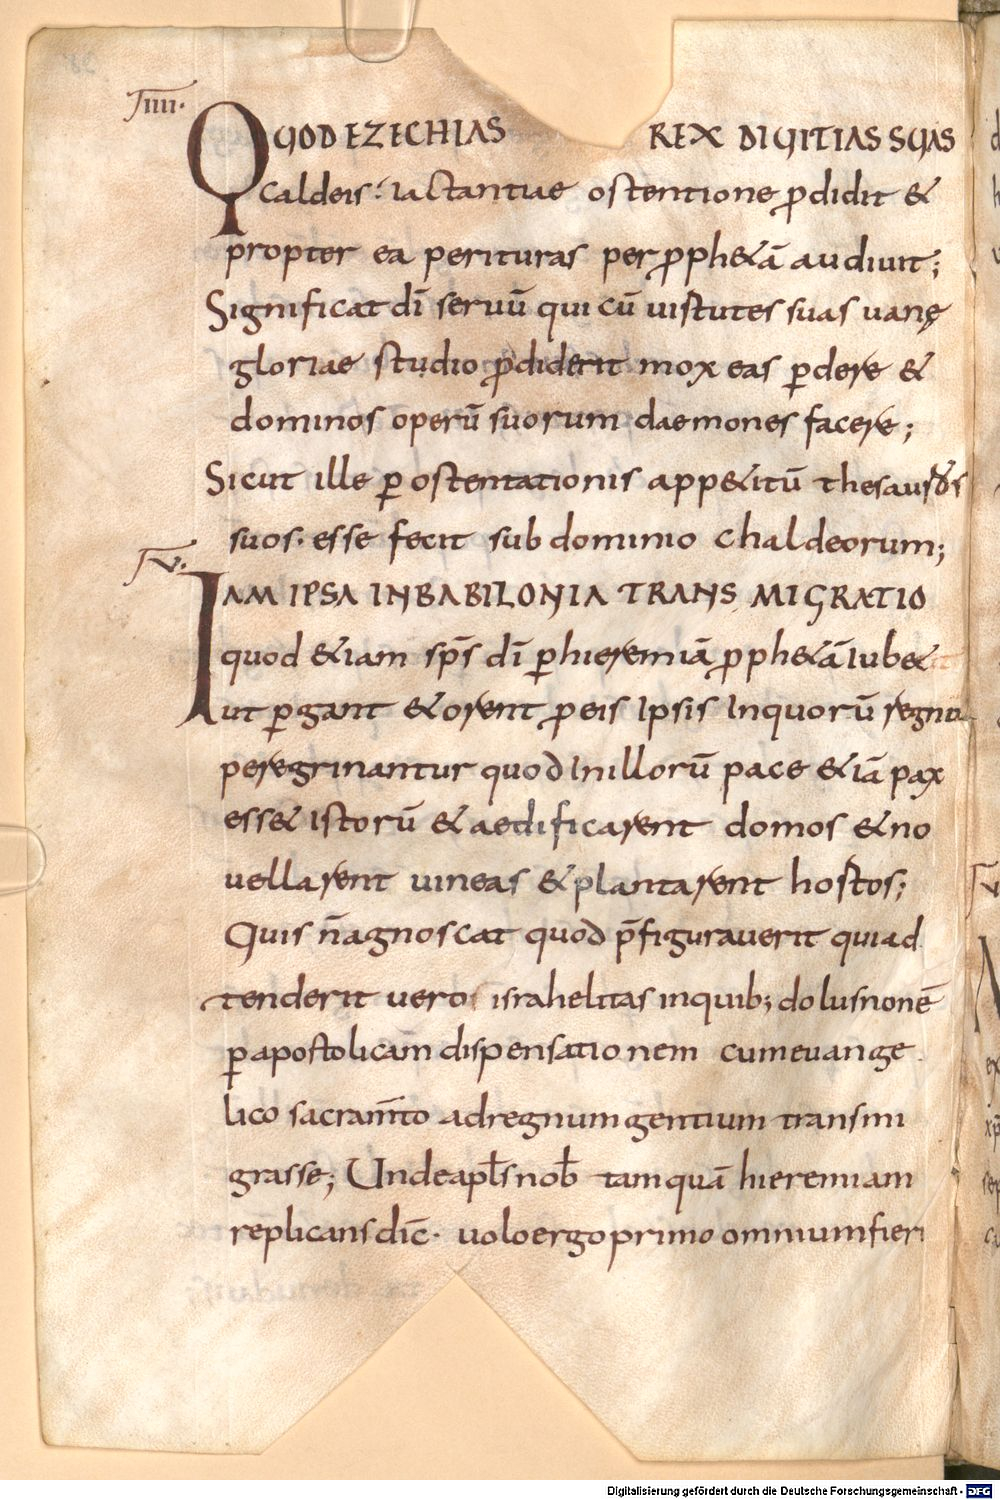 IIII.
QUOD EZECHIAS REX DIUITIAS SUAS
Caldeis: iactantiae ostentione ꝓdidit &
propter ea perituras per ꝓph&ā audiuit;
Significat dī seruū qui cū uistutes suas uanę
gloriae studio ꝓdiderit mox eas ꝑdere &
dominos operū suorum daemones facere;
Sicut ille ꝑ ostentationis app&itū thesauros
suos. esse fecit sub dominio chaldeorum;
V.
IAM IPSA IN BABILONIA TRANS MIGRATIO
quod &iam sp̄s dī ꝑ hieremiā ꝓph&ā Iub&
ut ꝑgant & orent ꝓ eis Ipsis Inquorū regno
peregrinantur quod Inillorū pace &iā pax
ess& Istorū & aedificarent domos & no
uellarent uineas & plantarent hostos;
Quis n̄ agnoscat quod p̄figurauerit qui ad
tenderit uero israhelitas inquib; dolus non ē
ꝑ apostolicam̄ dispensationem cum euange
lico sacram̄to ad regnum gentium transmi
grasse; Unde apl̄s nob̄ tamquā hieremiam
replicans dīc. uolo ergo primo omnium fieri
Digitalisierung gefördert durch die Deutsche Forschungsgemeinschaft - DFG